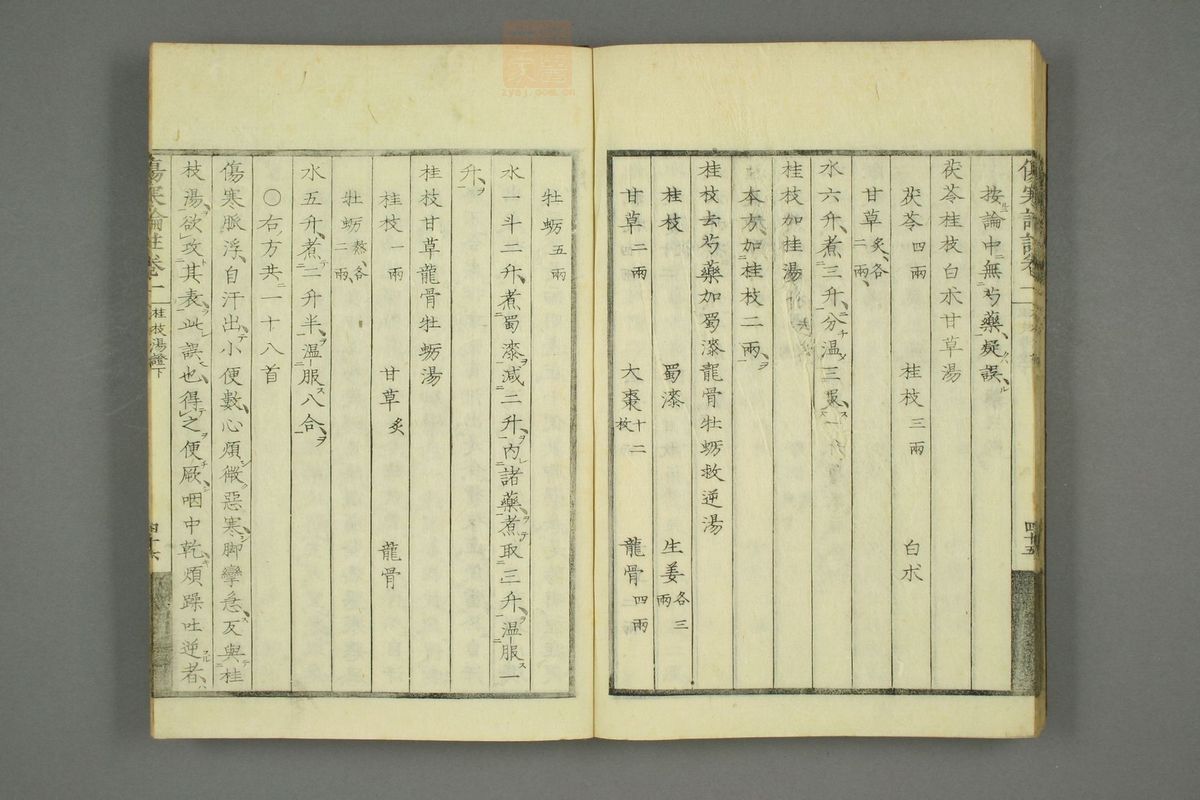 按論中無芍藥疑誤
茯苓桂枝白朮甘草湯
茯苓四兩 桂枝三兩 白朮
甘草炙各二兩
水六升煮三升分溫三服
桂枝加桂湯
本方加桂枝二兩
桂枝去芍藥加蜀漆龍骨牡蛎救逆湯
桂枝 蜀漆 生姜各三兩
甘草二兩 大棗十二枚 龍骨四兩
四十五
牡蛎五兩
水一斗二升煮蜀漆減二升內諸藥煮取三升溫服一
升
桂枝甘草龍骨牡蛎湯
桂枝一兩 甘草炙 龍骨
牡蛎熬各二兩
水五升煮二升半溫服八合
〇右方共一十八首
傷寒脈浮自汗出小便數心煩微惡寒脚攣急反與桂
枝湯欲攻其表此誤也得之便厥咽中乾煩躁吐逆者
傷寒論註卷二 桂枝湯證下 四十六
zysj.com.cn